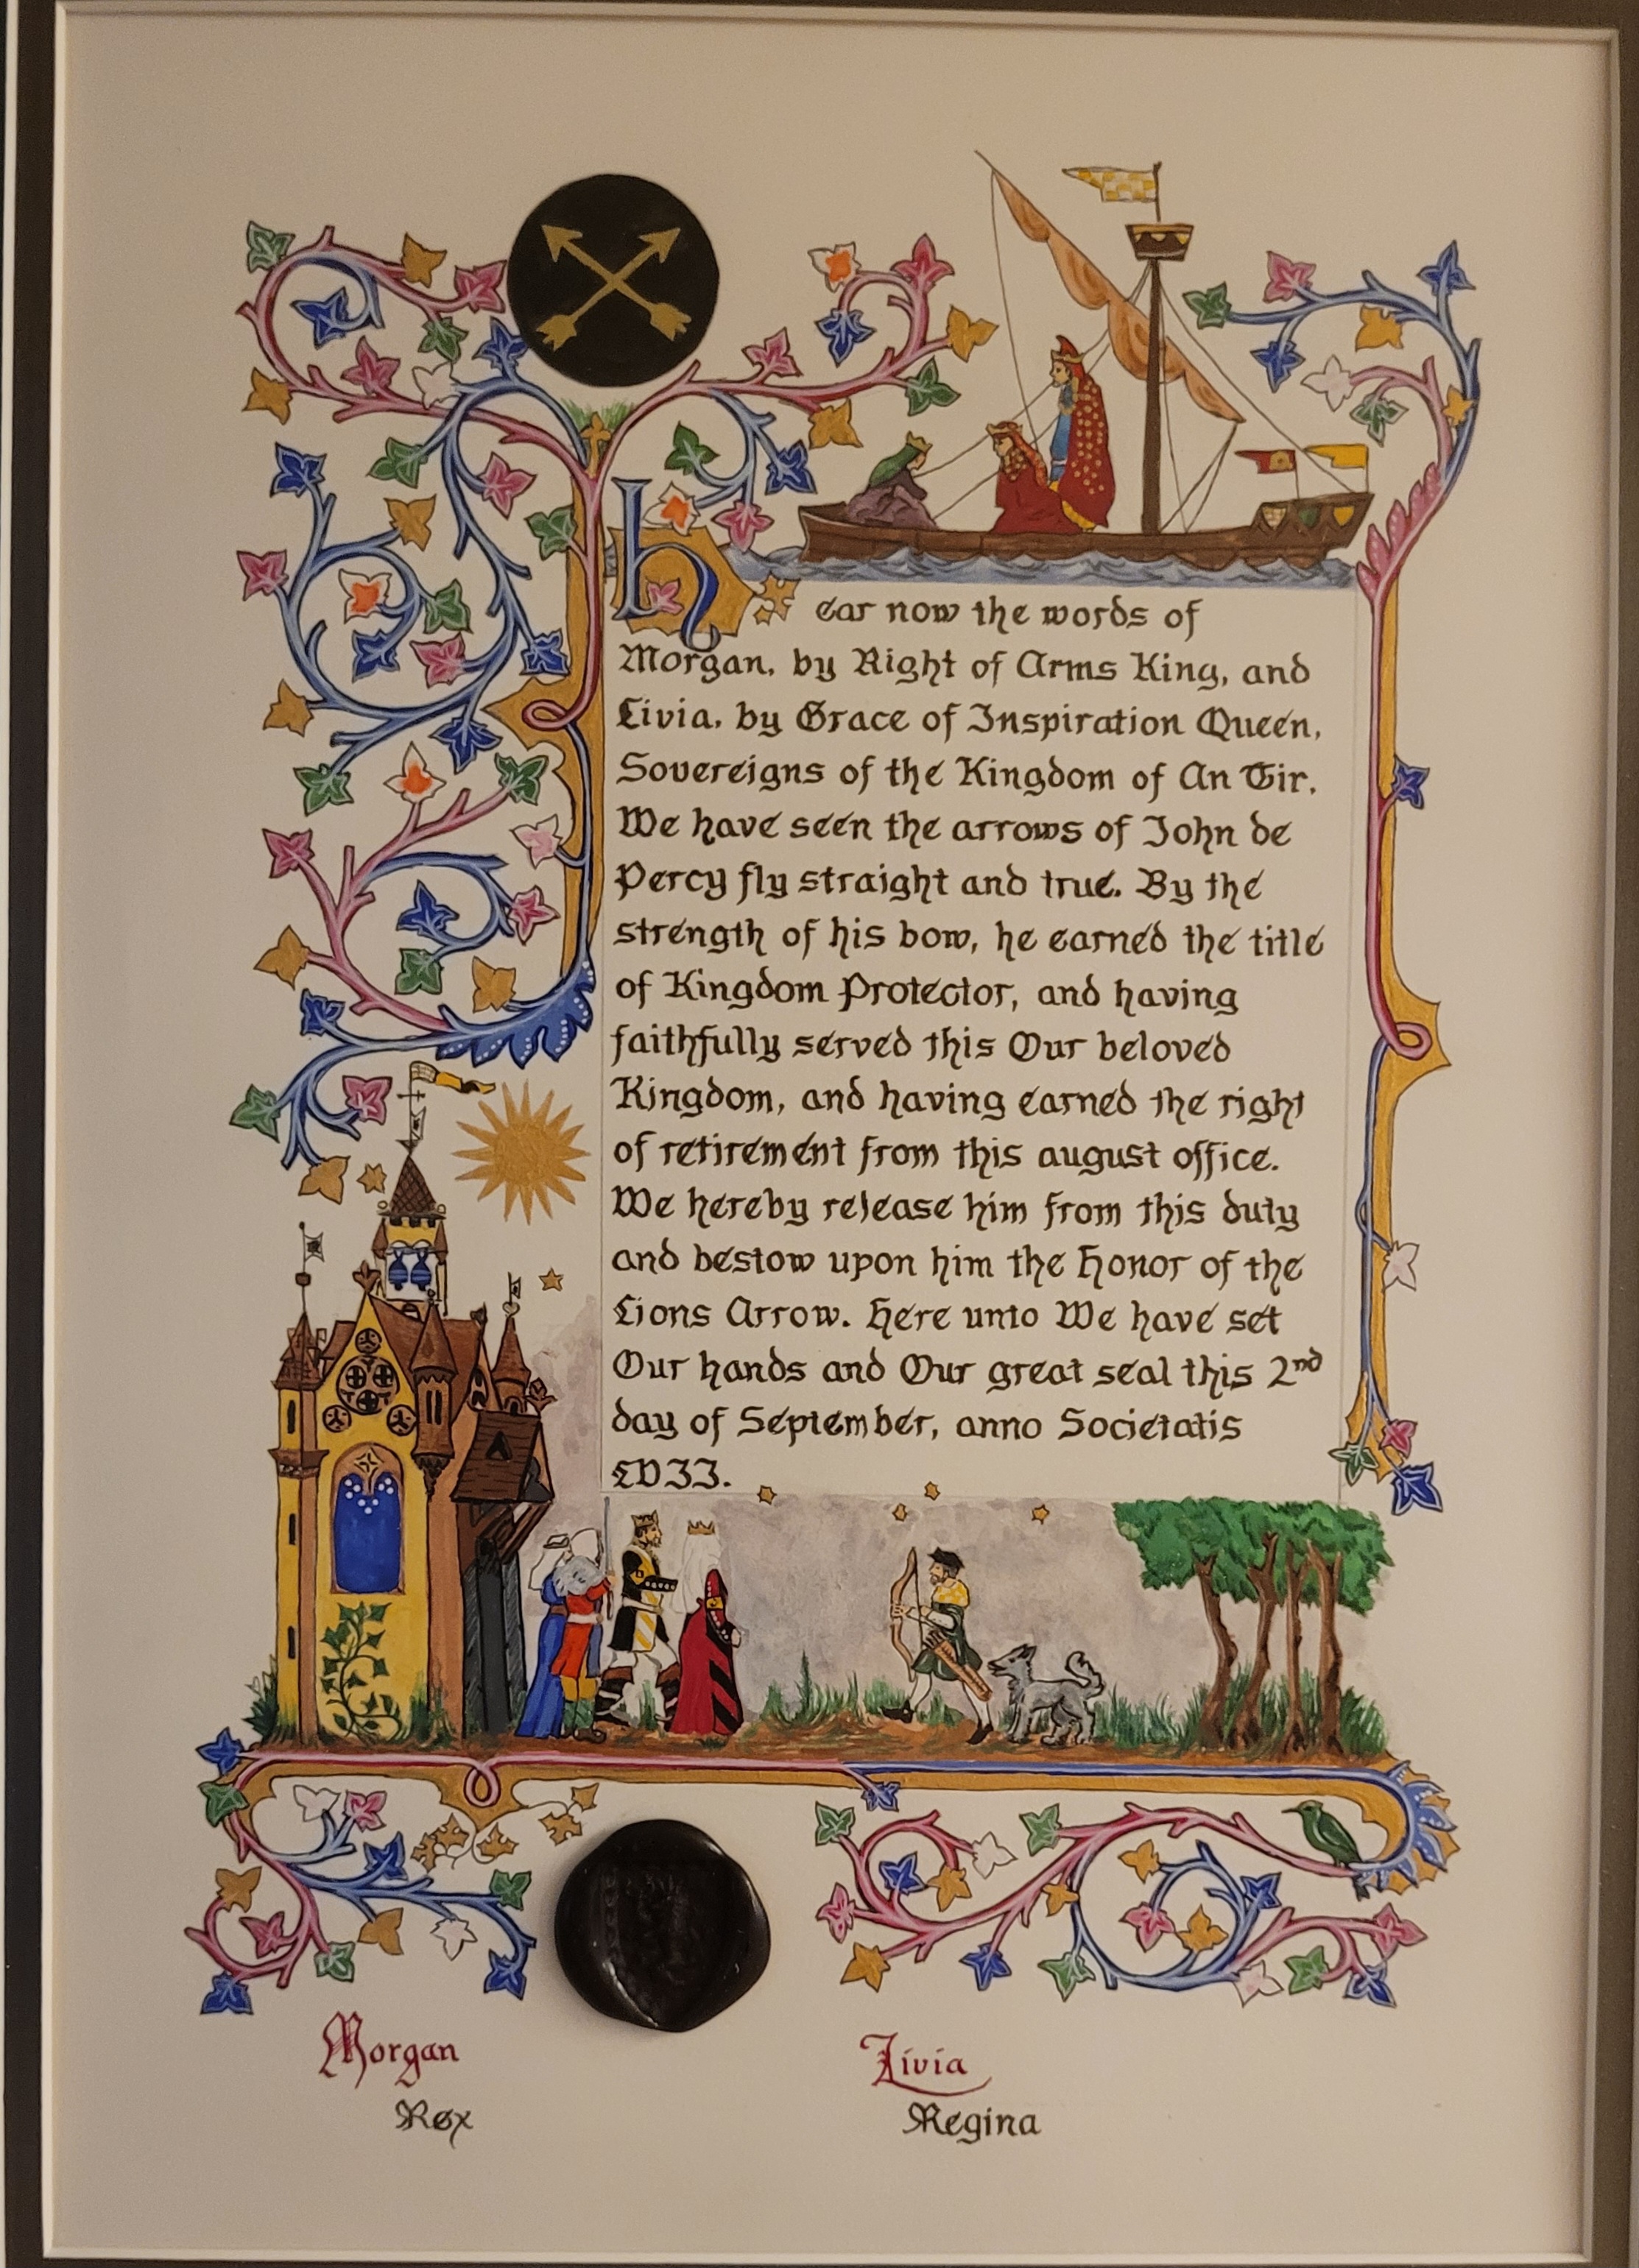 Hear now the words of
Morgan, by Right of Arms King, and
Livia, by Grace of Inspiration Queen,
Sovereigns of the Kingdom of An Tir.
We have seen the arrows of John de
Percy fly straight and true. By the
strength of his bow, he earned the title
of Kingdom Protector, and having
faithfully served this Our beloved
Kingdom, and having earned the right
of retirement from this august office.
We hereby release him from this duty
and bestow upon him the Honor of the
Lions Arrow. Here unto We have set
Our hands and Our great seal this 2nd
day of September, anno Societatis
LVII.
Morgan
Rex
Livia
Regina